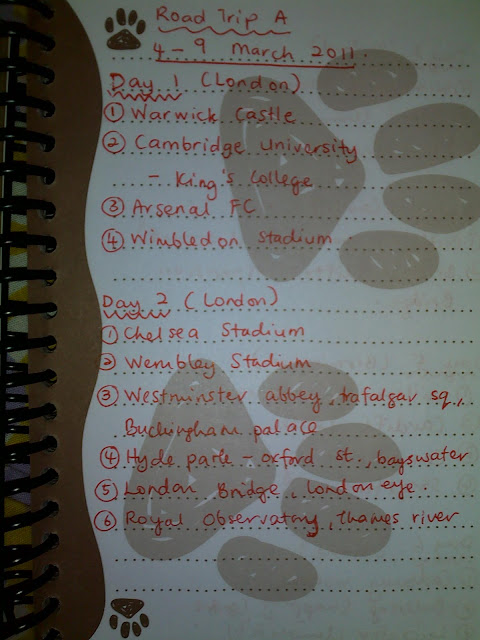 Road Trip A
4 - 9 March 2011
Day 1 (London)
① Warwick Castle
② Cambridge University
- King's College
③ Arsenal FC
④ Wimbledon Stadium
Day 2 (London)
① Chelsea Stadium
② Wembley Stadium
③ Westminster abbey, trafalgar sq.,
Buckingham palace
④ Hyde park - oxford st., bayswater
⑤ London Bridge, london eye.
⑥ Royal Observatory, Thames river